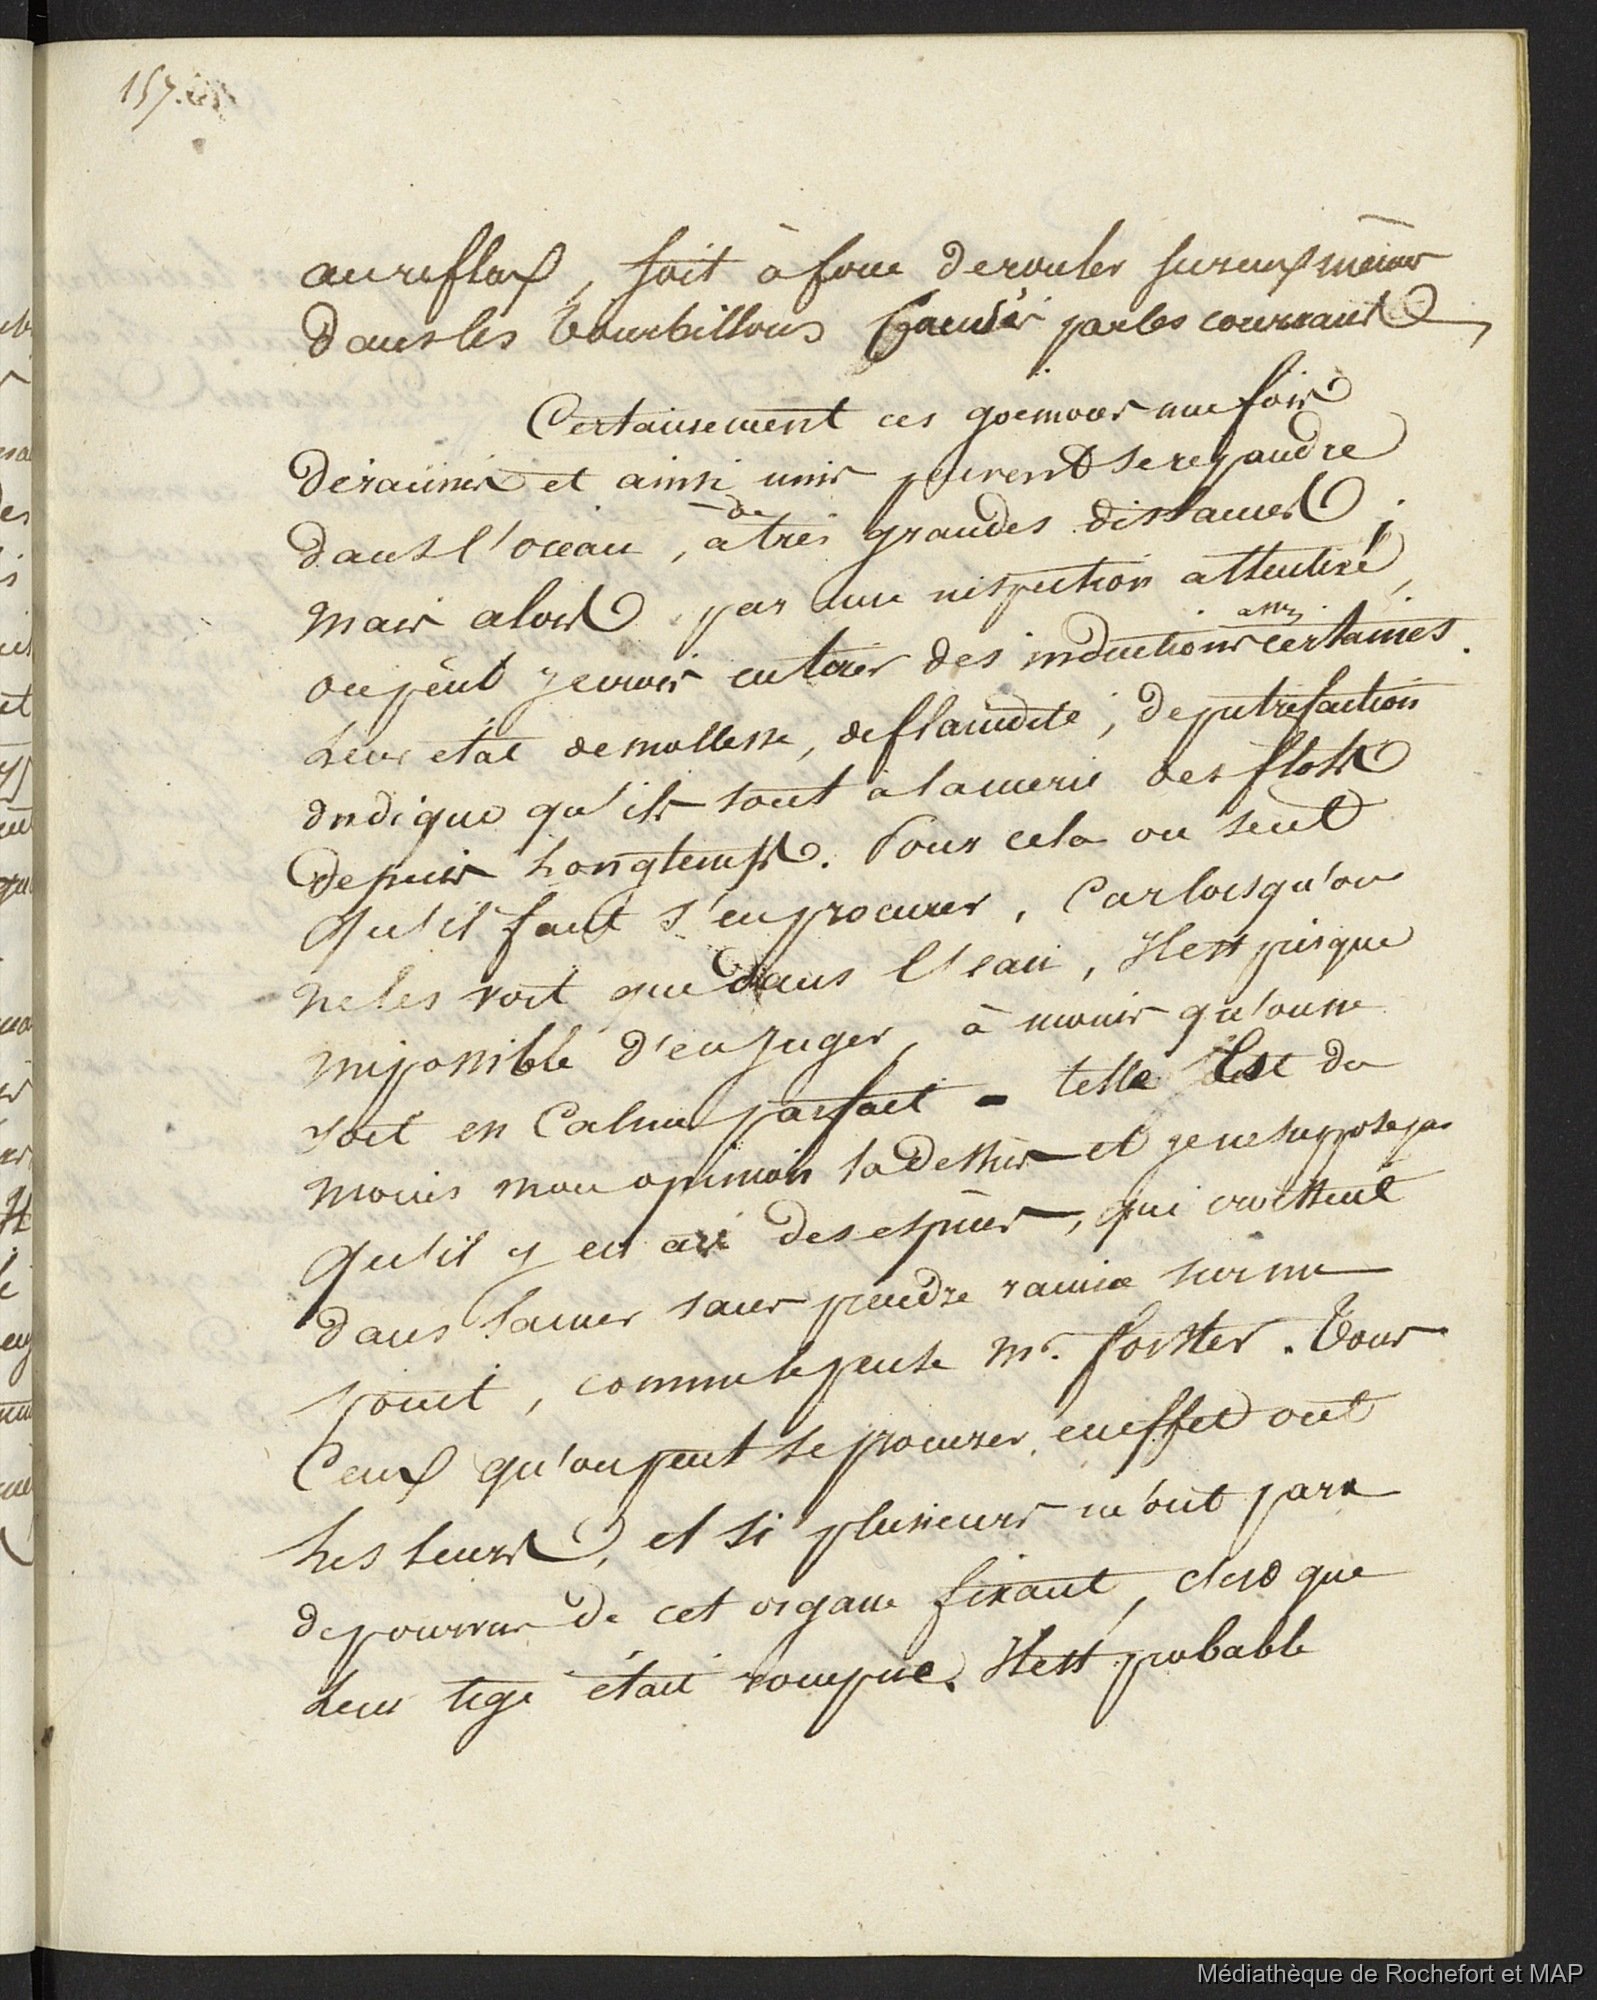 157.
au reflux, soit à force de rouler sur eux mêmes
dans les tourbillons causés par les courrants,
Certainement ces goemons une fois
deracinés et ainsi unis peuvent se repandre
dans l'océan, à de très grandes distances;
mais alors par une inspection attentive,
on peut je crois en tirer des inductions assez certaines.
Leur etat de mollesse, de flaccidité, de putrefaction
indique qu'ils sont à la merci des flots
depuis Longtemps. Pour cela on sent
qu'il faut s'en procurer, Car lorsqu'on
ne les voit que dans l'eau, Il est presque
impossible d'en juger, à moins qu'on ne
soit en Calme parfait - telle est du
moins mon opinion la dessus et je ne suppose pas
qu'il y en ai des espèces, qui croissent
dans la mer sans prendre racine sur un
point, comme le pense Mr. forster. Tous
Ceux qu'on peut se procurer en effet ont
Les Leurs, et si plusieurs m'ont paru
depourvus de cet organe fixant, c'est que
Leur tige était rompue. Il est probable
Médiathèque de Rochefort et MAP